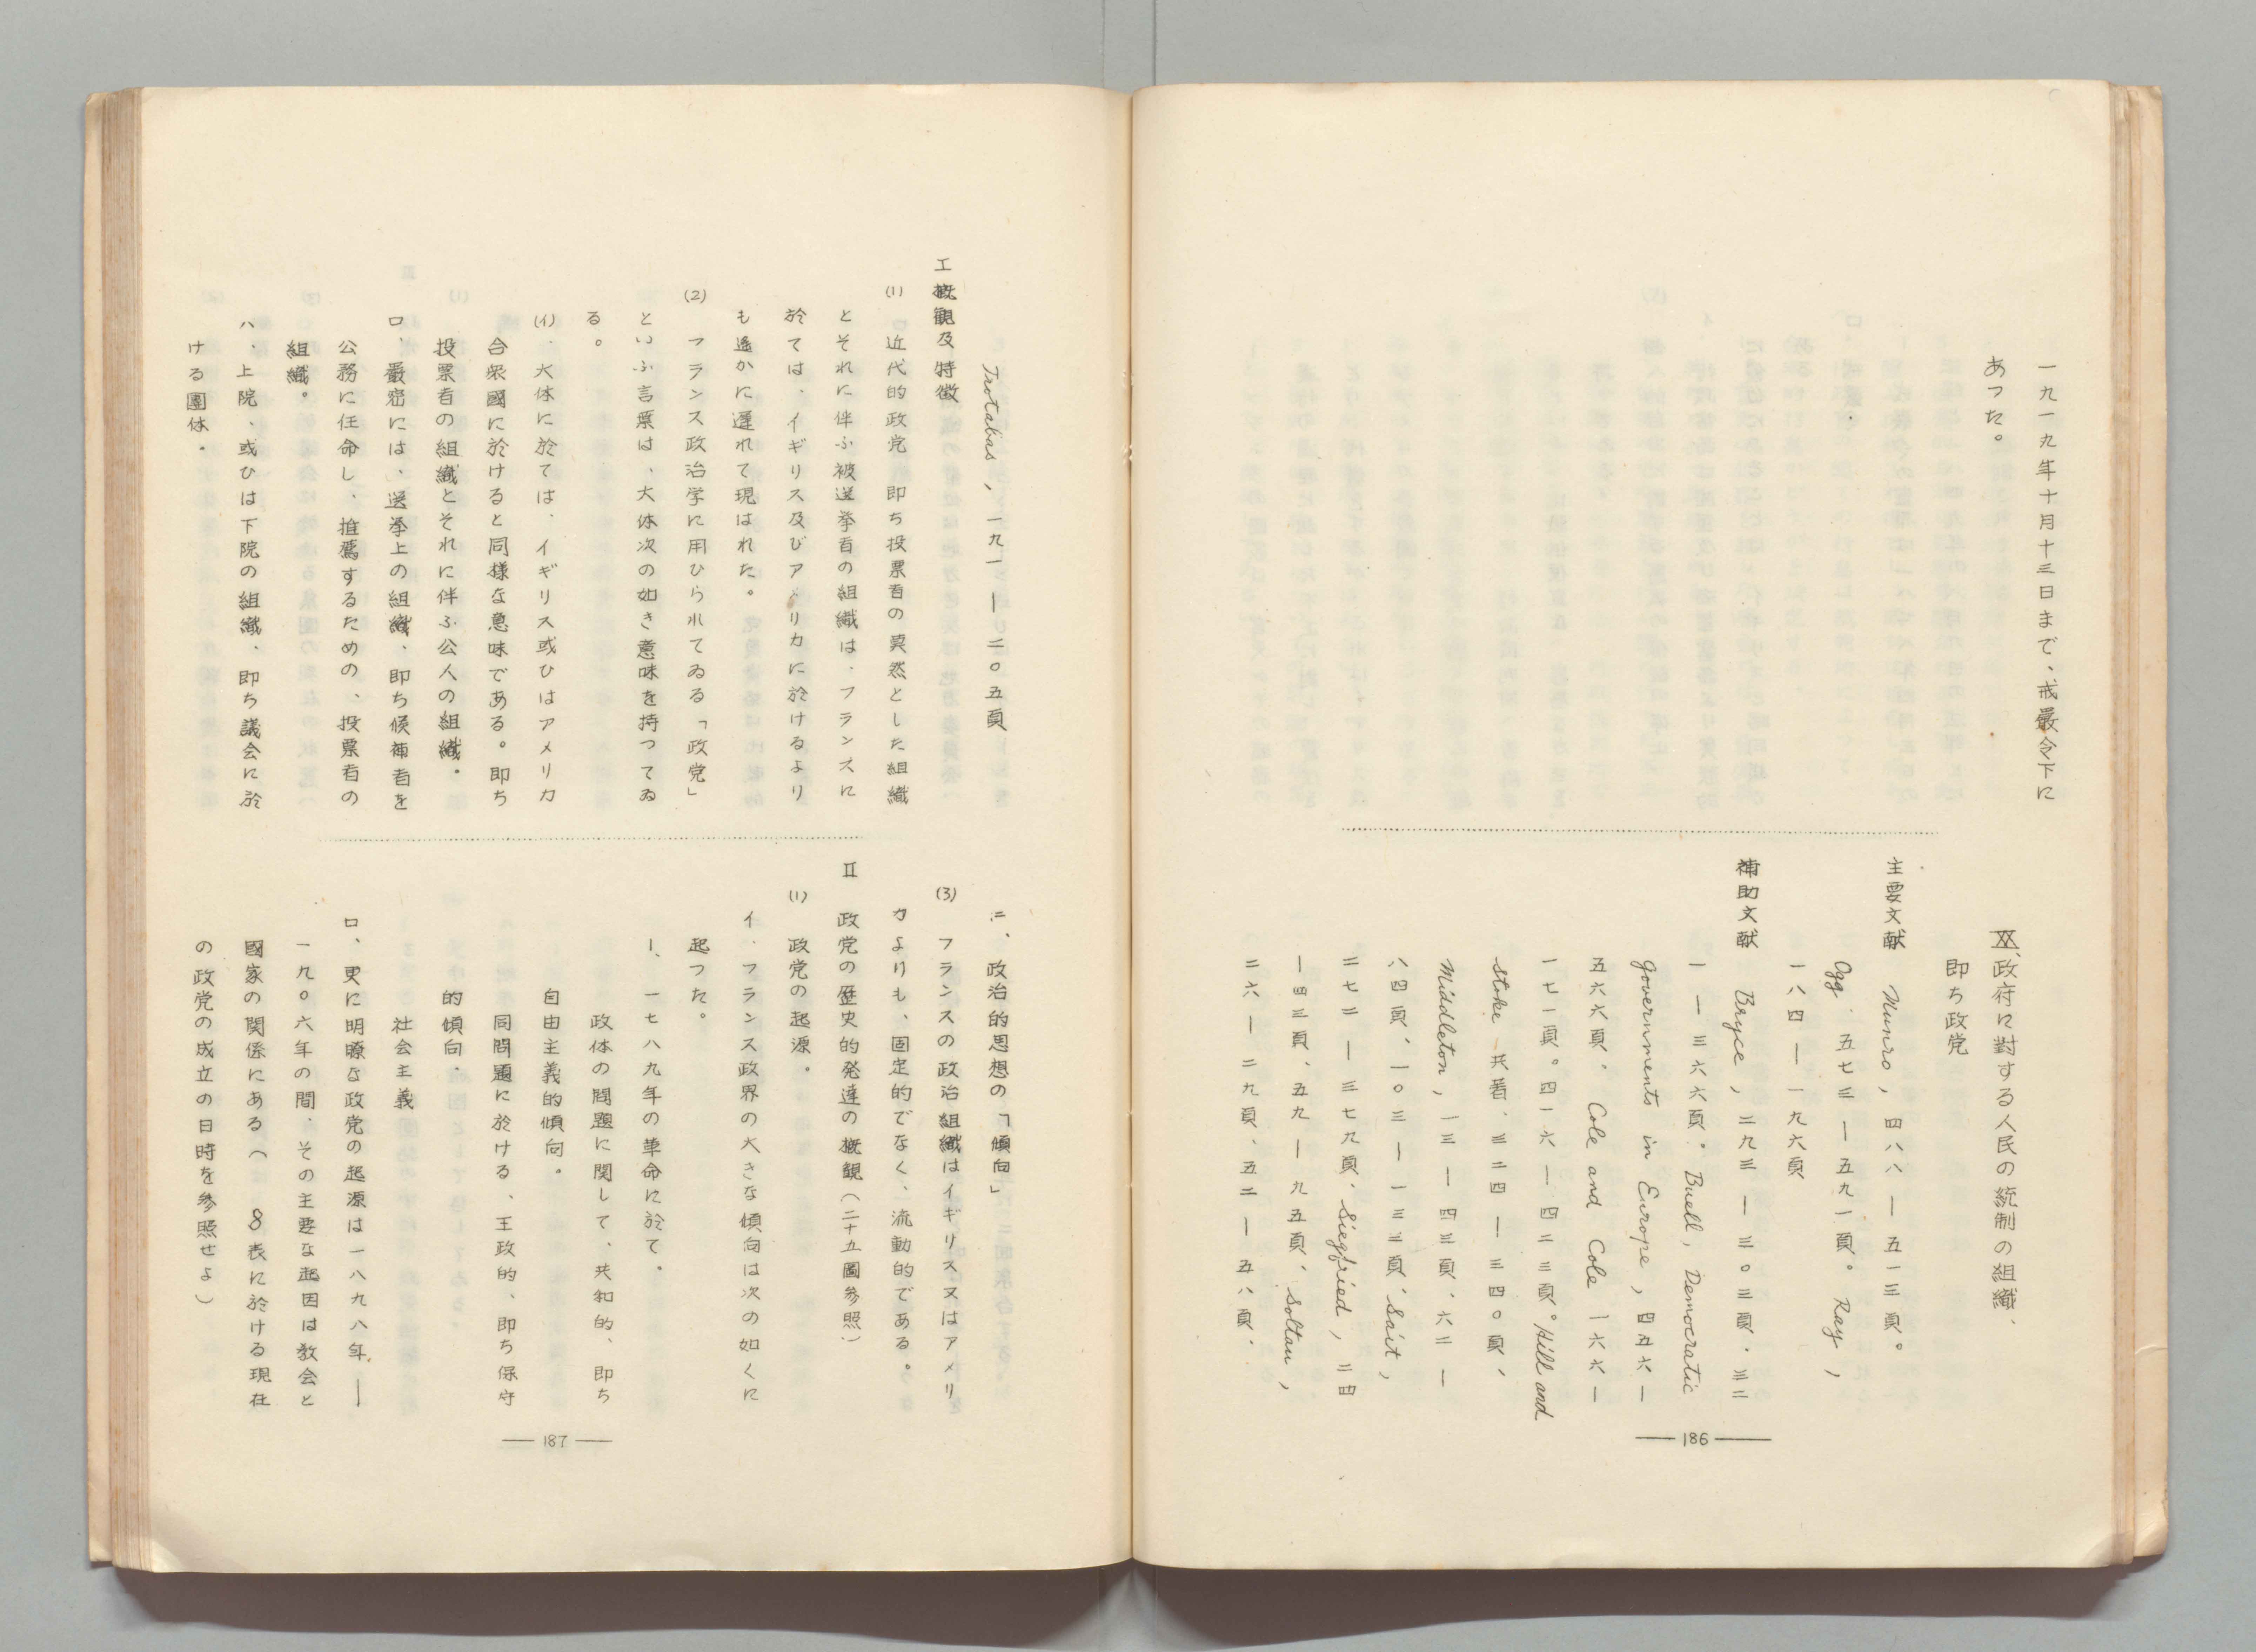 一九一九年十月十三日まで、戒嚴令下に
あつた。
XX、政府に對する人民の統制の組織、
即ち政党
主要文献 Munro, 四八八—五一三頁。
Ogg 五七三—五九一頁。 Ray,
一八四—一九六頁
補助文献 Bryce, 二九三—三〇三頁、三二
一—三六六頁。Buell, Democratic
Governments in Europe, 四五六—
五六六頁、Cole and Cole 一六六—
一七一頁。四一六—四二三頁。Hill and
Stoke 共著、三二四—三四〇頁、
Middleton, 一三—四三頁、六二—
八四頁、一〇三—一三三頁、Sait,
三七三—三七九頁、Siegfried, 二四
—四三頁、五九—九五頁、Soltau,
二六—二九頁、五二—五八頁、
— 186 —
Trotabas, 一九一—二〇五頁
I 概観及特徴
(1) 近代的政党 即ち投票者の異然とした組織
とそれに伴ふ被選挙者の組織は、フランスに
於ては、イギリス及びアメリカに於けるより
も遙かに遲れて現はれた。
(2) フランス政治学に用ひられてゐる「政党」
といふ言葉は、大体次の如き意味を持つてゐ
る。
(イ)、大体に於ては、イギリス或ひはアメリカ
合衆國に於けると同様な意味である。即ち
投票者の組織とそれに伴ふ公人の組織。
ロ、嚴密には、選挙上の組織、即ち候補者を
公務に任命し、推薦するための、投票者の
組織。
ハ、上院、或ひは下院の組織、即ち議会に於
ける團体。
ニ、政治的思想の「傾向」
(3) フランスの政治組織はイギリス又はアメリ
カよりも、固定的でなく、流動的である。
II 政党の歴史的発達の概観(二十五圖参照)
(1) 政党の起源。
イ、フランス政界の大きな傾向は次の如くに
起つた。
1、一七八九年の革命に於て。
政体の問題に関して、共和的、即ち
自由主義的傾向。
同問題に於ける、王政的、即ち保守
的傾向、
社会主義
ロ、更に明瞭な政党の起源は一八九八年—
一九〇六年の間、その主要な起因は教会と
國家の関係にある( 8表に於ける現在
の政党の成立の日時を参照せよ)
— 187 —